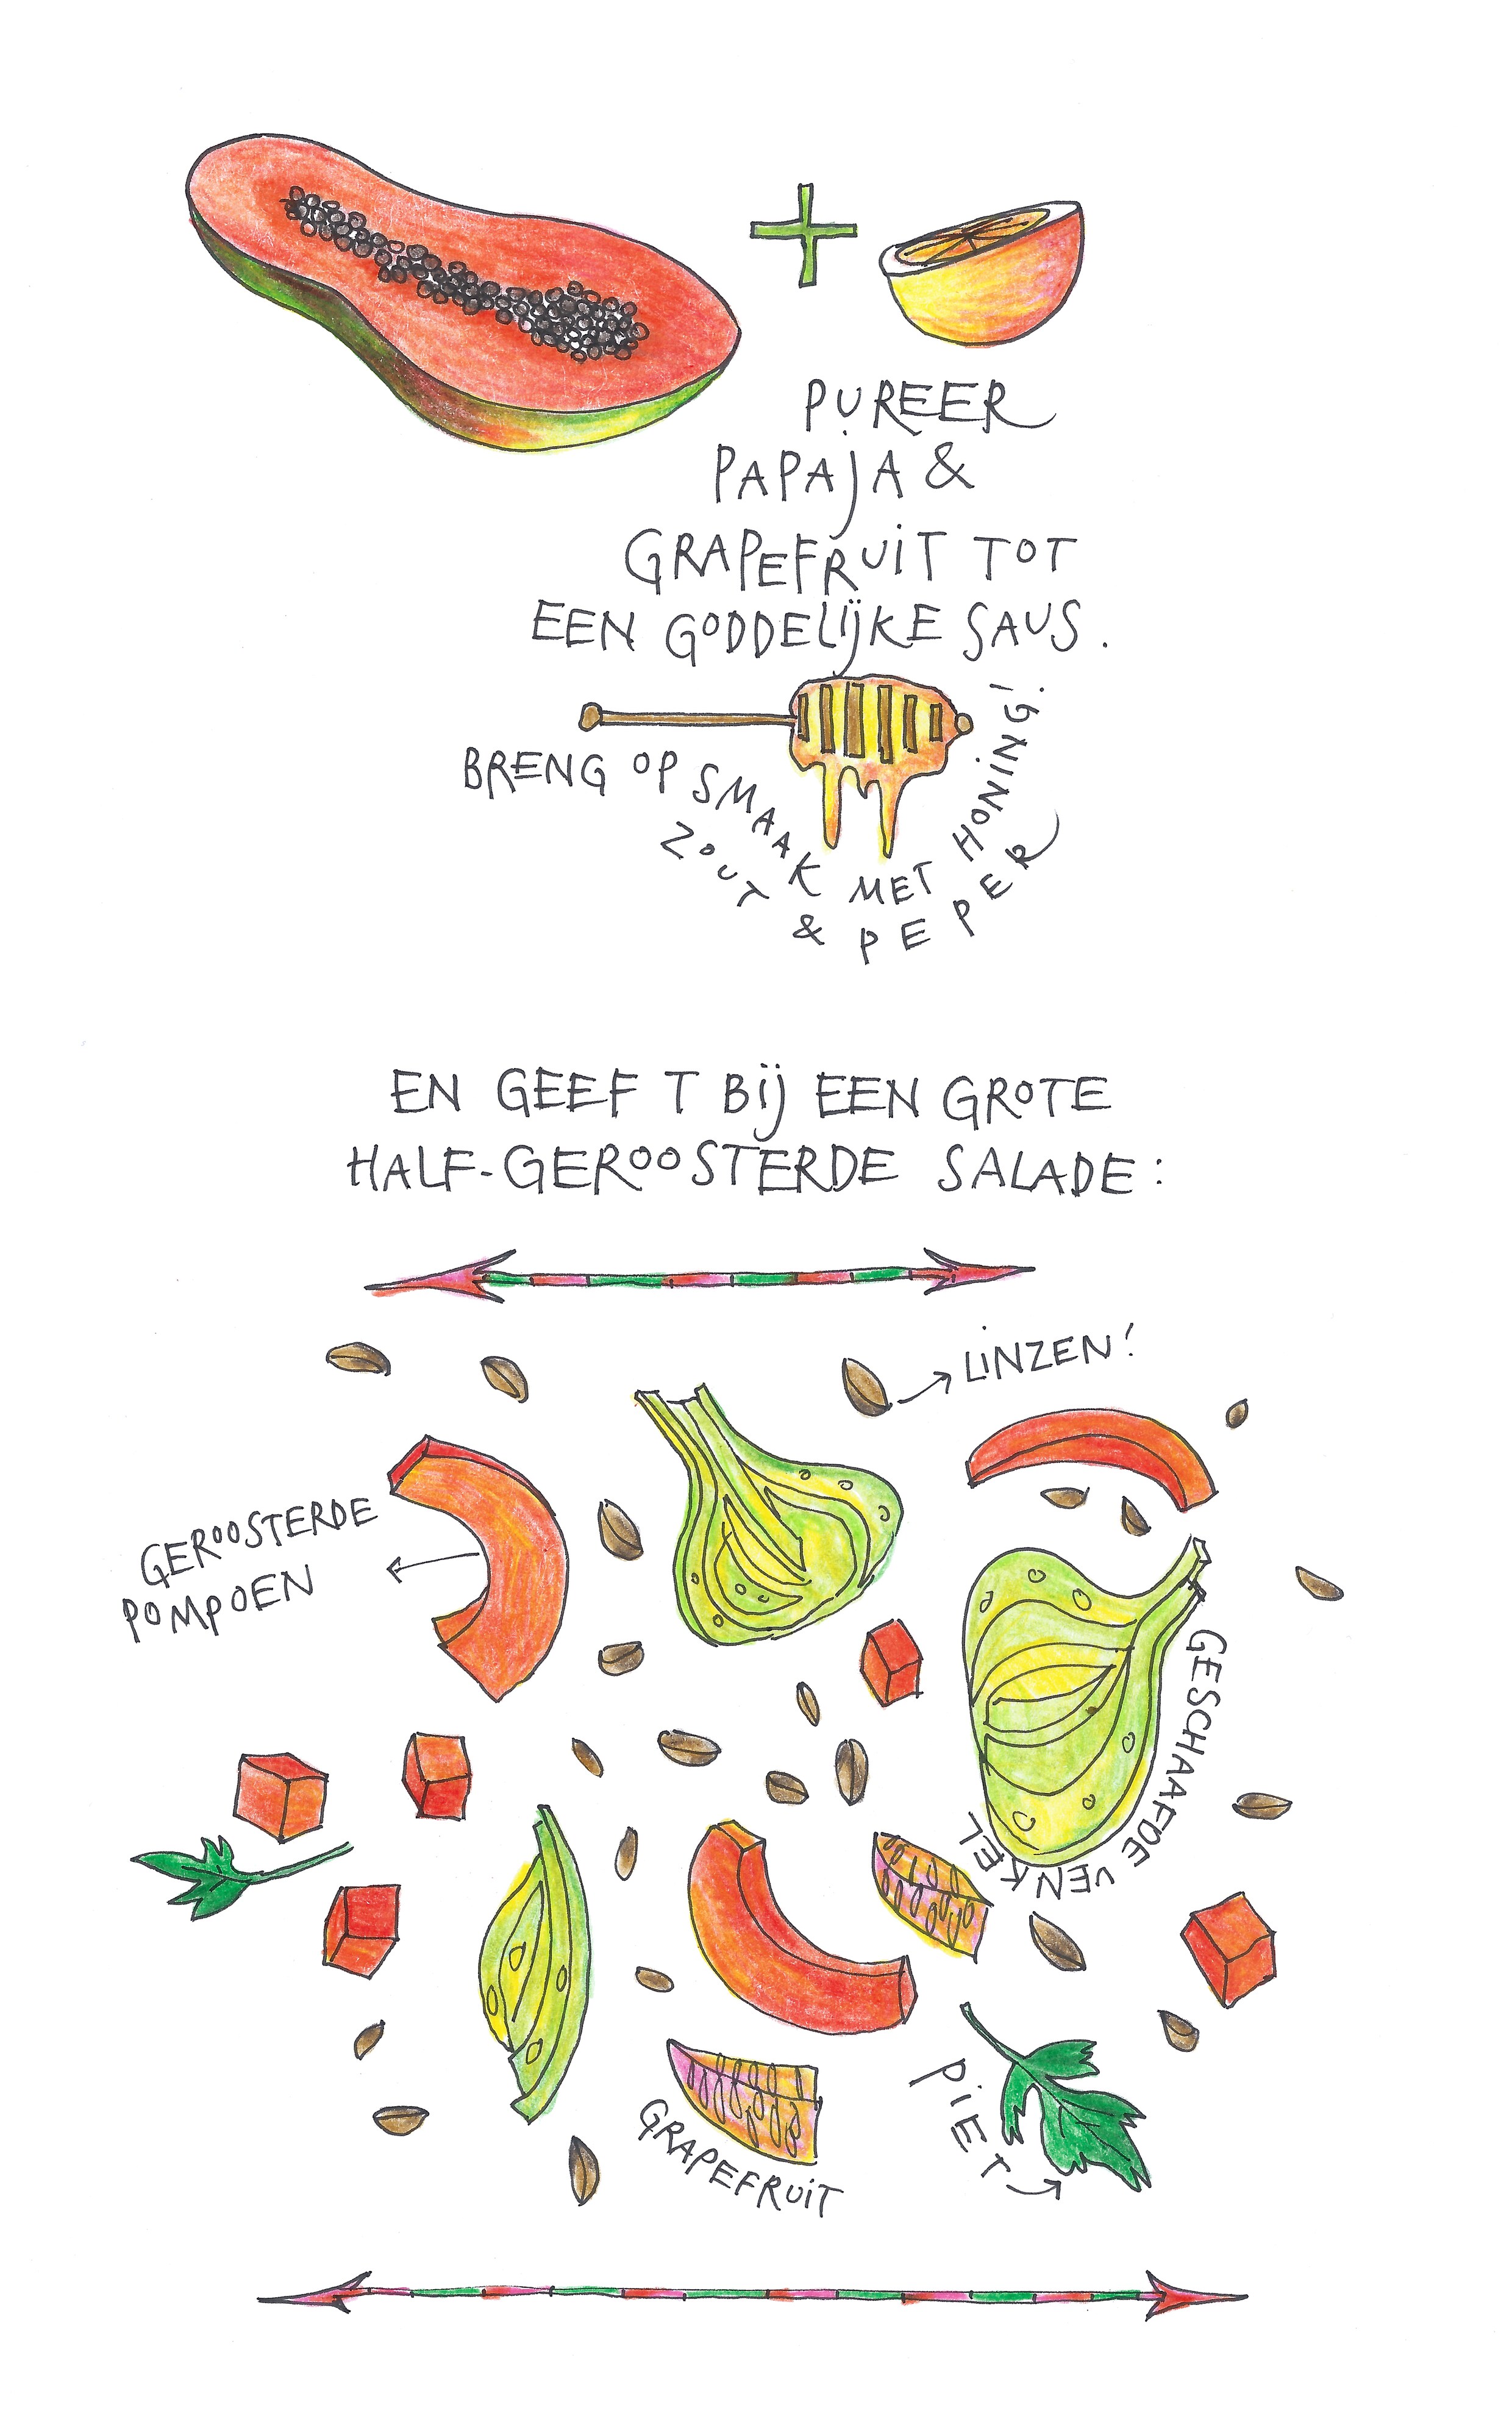 PUREER
PAPAJA &
GRAPEFRUIT TOT
EEN GODDELIJKE SAUS.
BRENG OP SMAAK MET HONING!
ZOUT & PEPER
EN GEEF T BIJ EEN GROTE
HALF-GEROOSTERDE SALADE:
LINZEN!
GEROOSTERDE
POMPOEN
GESCHAAFDE VENKEL
PIET
GRAPEFRUIT